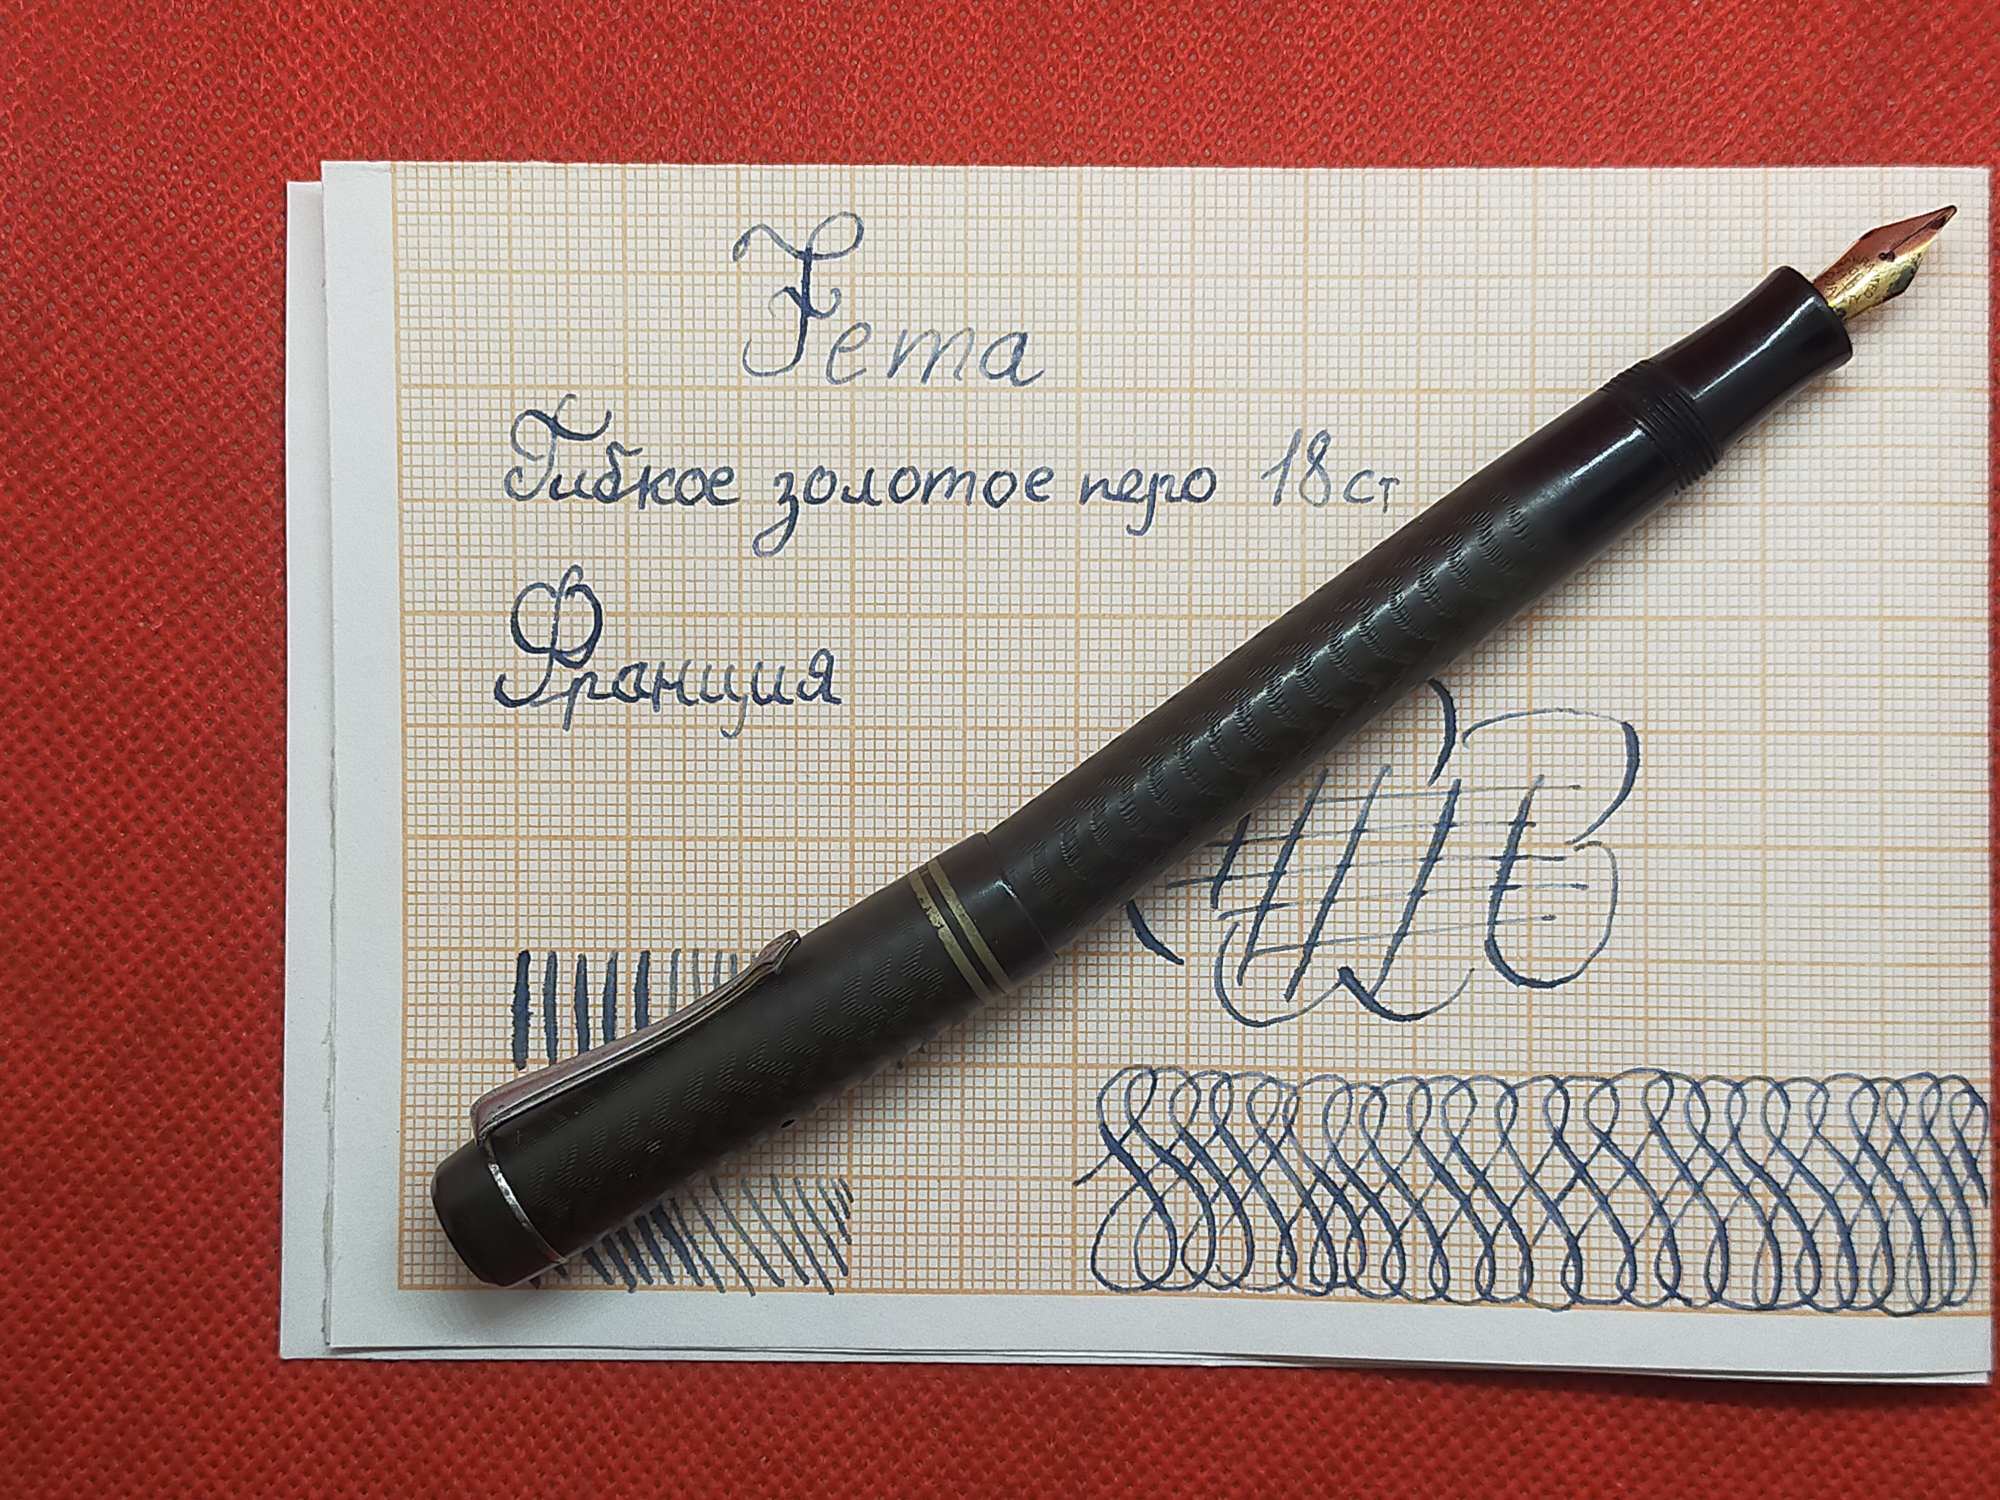 Fema
Гибкое золотое перо 18ст
Франция